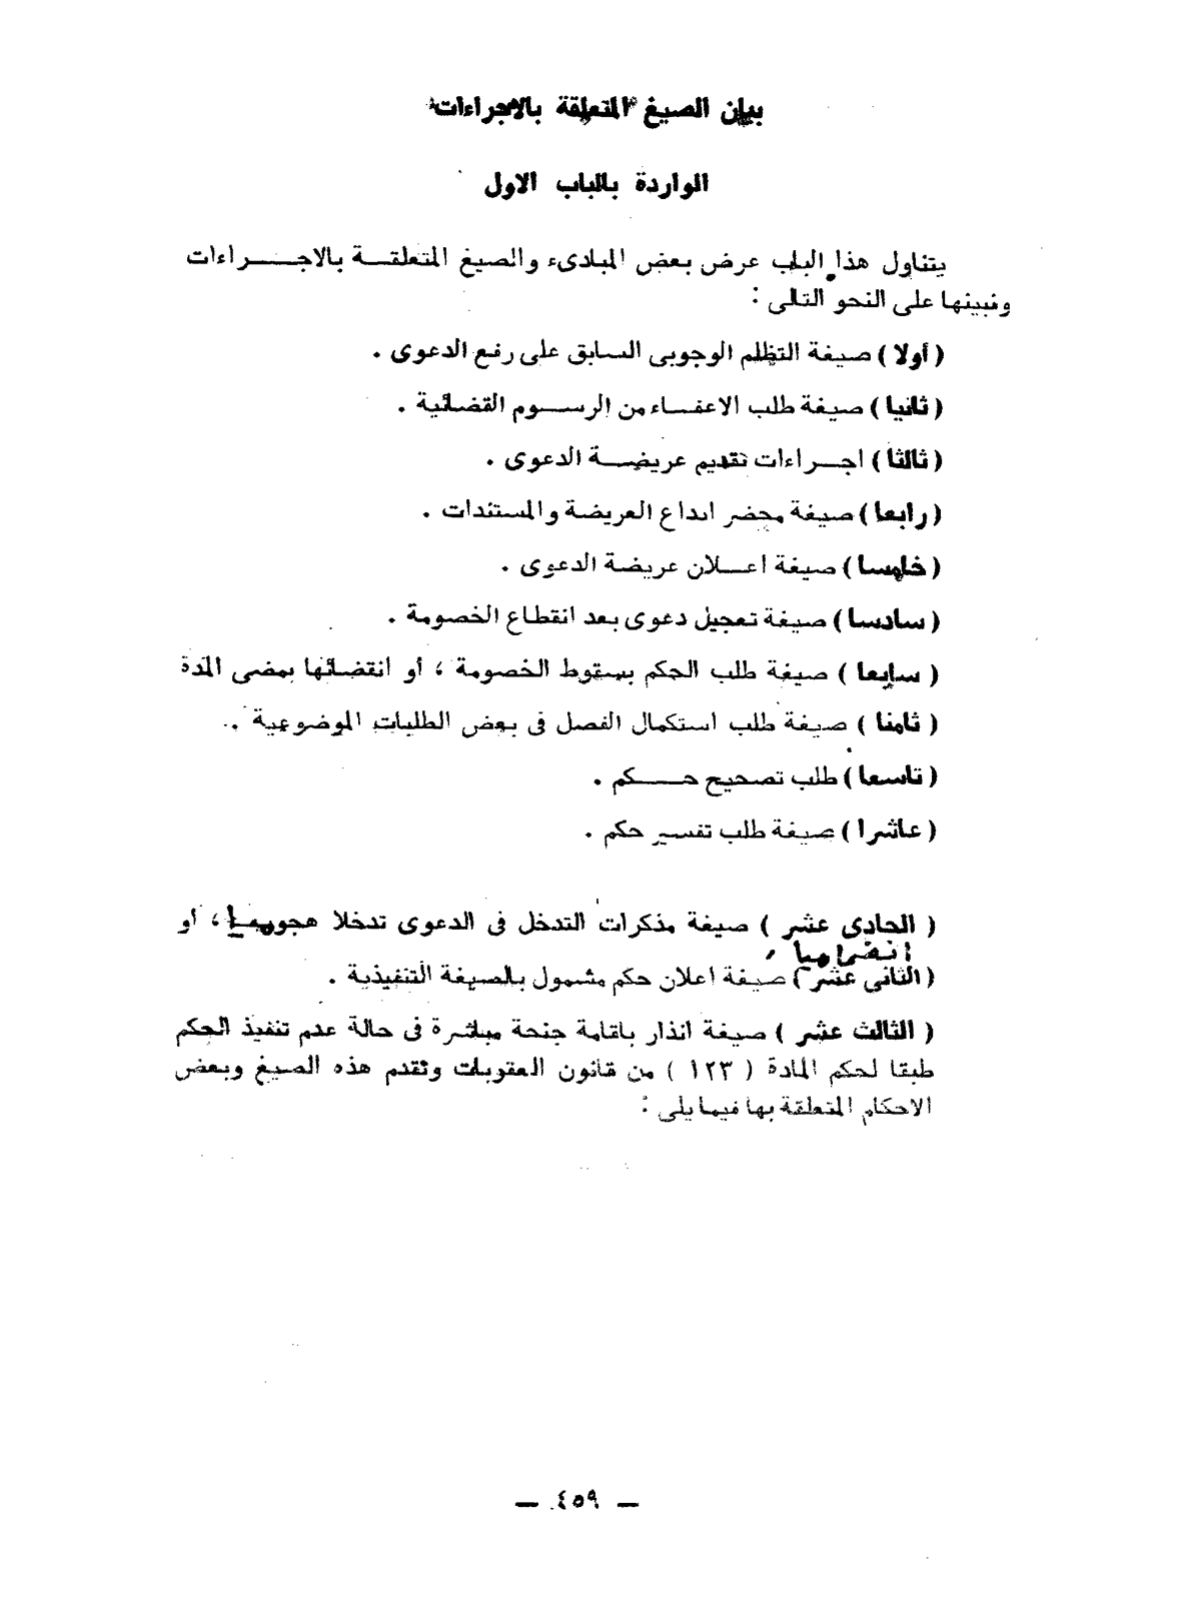 بيان الصيغ المتعلقة بالاجراءات
الواردة بالباب الاول
يتناول هذا الباب عرض بعض المبادىء والصيغ المتعلقة بالاجراءات
ونبينها على النحو التالى :
( أولا ) صيغة التظلم الوجوبى السابق على رفع الدعوى .
( ثانيا ) صيغة طلب الاعفاء من الرسوم القضائية .
( ثالثا ) اجراءات تقديم عريضة الدعوى .
( رابعا ) صيغة محضر ايداع العريضة والمستندات .
( خامسا ) صيغة اعلان عريضة الدعوى .
( سادسا ) صيغة تعجيل دعوى بعد انقطاع الخصومة .
( سابعا ) صيغة طلب الحكم بسقوط الخصومة ، أو انقضائها بمضى المدة
( ثامنا ) صيغة طلب استكمال الفصل فى بعض الطلبات الموضوعية .
( تاسعا ) طلب تصحيح حكم .
( عاشرا ) صيغة طلب تفسير حكم .
( الحادى عشر ) صيغة مذكرات التدخل فى الدعوى تدخلا هجوميا ، أو
انضماميا .
( الثانى عشر ) صيغة اعلان حكم مشمول بالصيغة التنفيذية .
( الثالث عشر ) صيغة انذار باقامة جنحة مباشرة فى حالة عدم تنفيذ الحكم
طبقا لحكم المادة ( ١٢٣ ) من قانون العقوبات ونقدم هذه الصيغ وبعض
الاحكام المتعلقة بها فيما يلى :
— ٤٥٩ —